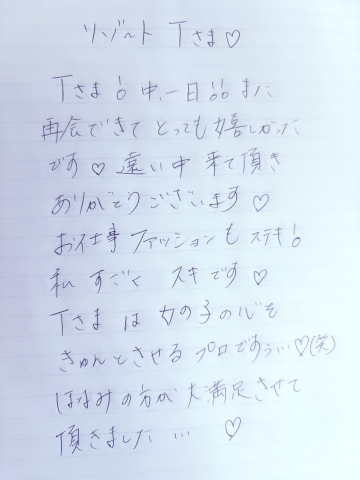 リゾート Tさま♡
Tさま！中、一日!! また
再会できて とっても嬉しかった
です♡ 遠い中 来て頂き
ありがとうございます♡
お仕事 ファッションも ステキ！
私 すごく スキです♡
Tさま は 女の子の心を
きゅんとさせる プロですぅ…♡(笑)
ほなみの方が 大満足させて
頂きました … ♡